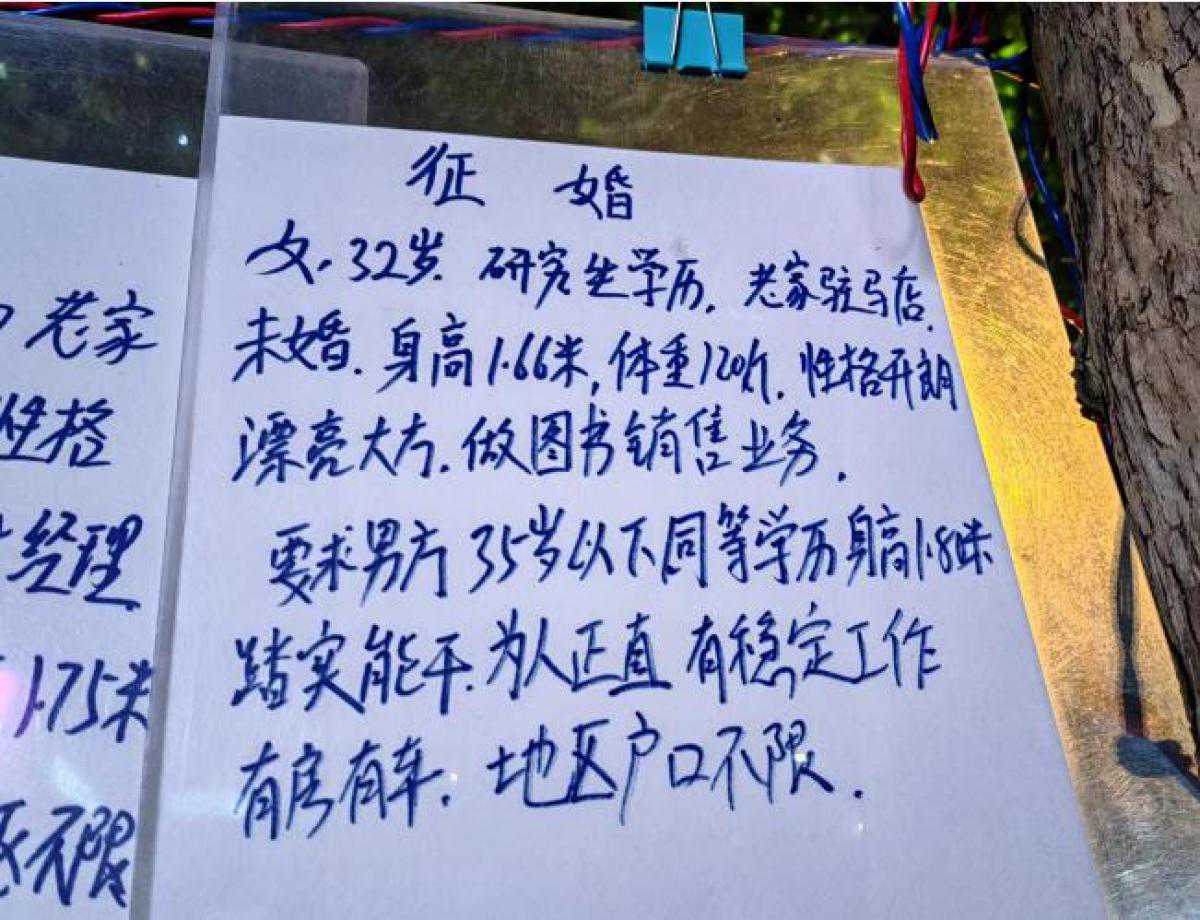 征 婚
女.32岁.研究生学历.老家驻马店.
未婚.身高1.66米,体重120斤.性格开朗
漂亮大方.做图书销售业务.
要求男方35岁以下同等学历身高1.8米
踏实能干.为人正直 有稳定工作
有房有车.地区户口不限.
老家
性格
经理
1.75米
不限